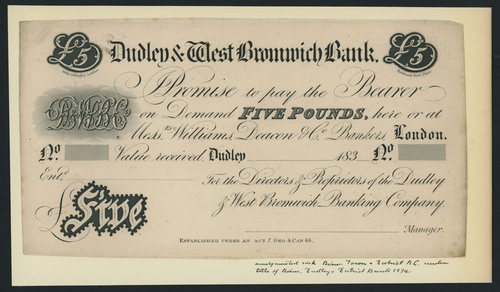 £5 Dudley & West Bromwich Bank. £5
Promise to pay the Bearer
on Demand FIVE POUNDS, here or at
Mess.rs Williams, Deacon & Co. Bankers London.
No. Value received, Dudley 183 No.
Ent.d For the Directors & Proprietors of the Dudley
& West Bromwich Banking Company.
£Five
Manager.
ESTABLISHED UNDER AN ACT 7. GEO. 4. CAP. 46.
amalgamated with Birm. Town & District B.C. under
title of Birm. Dudley & District Bank 1874